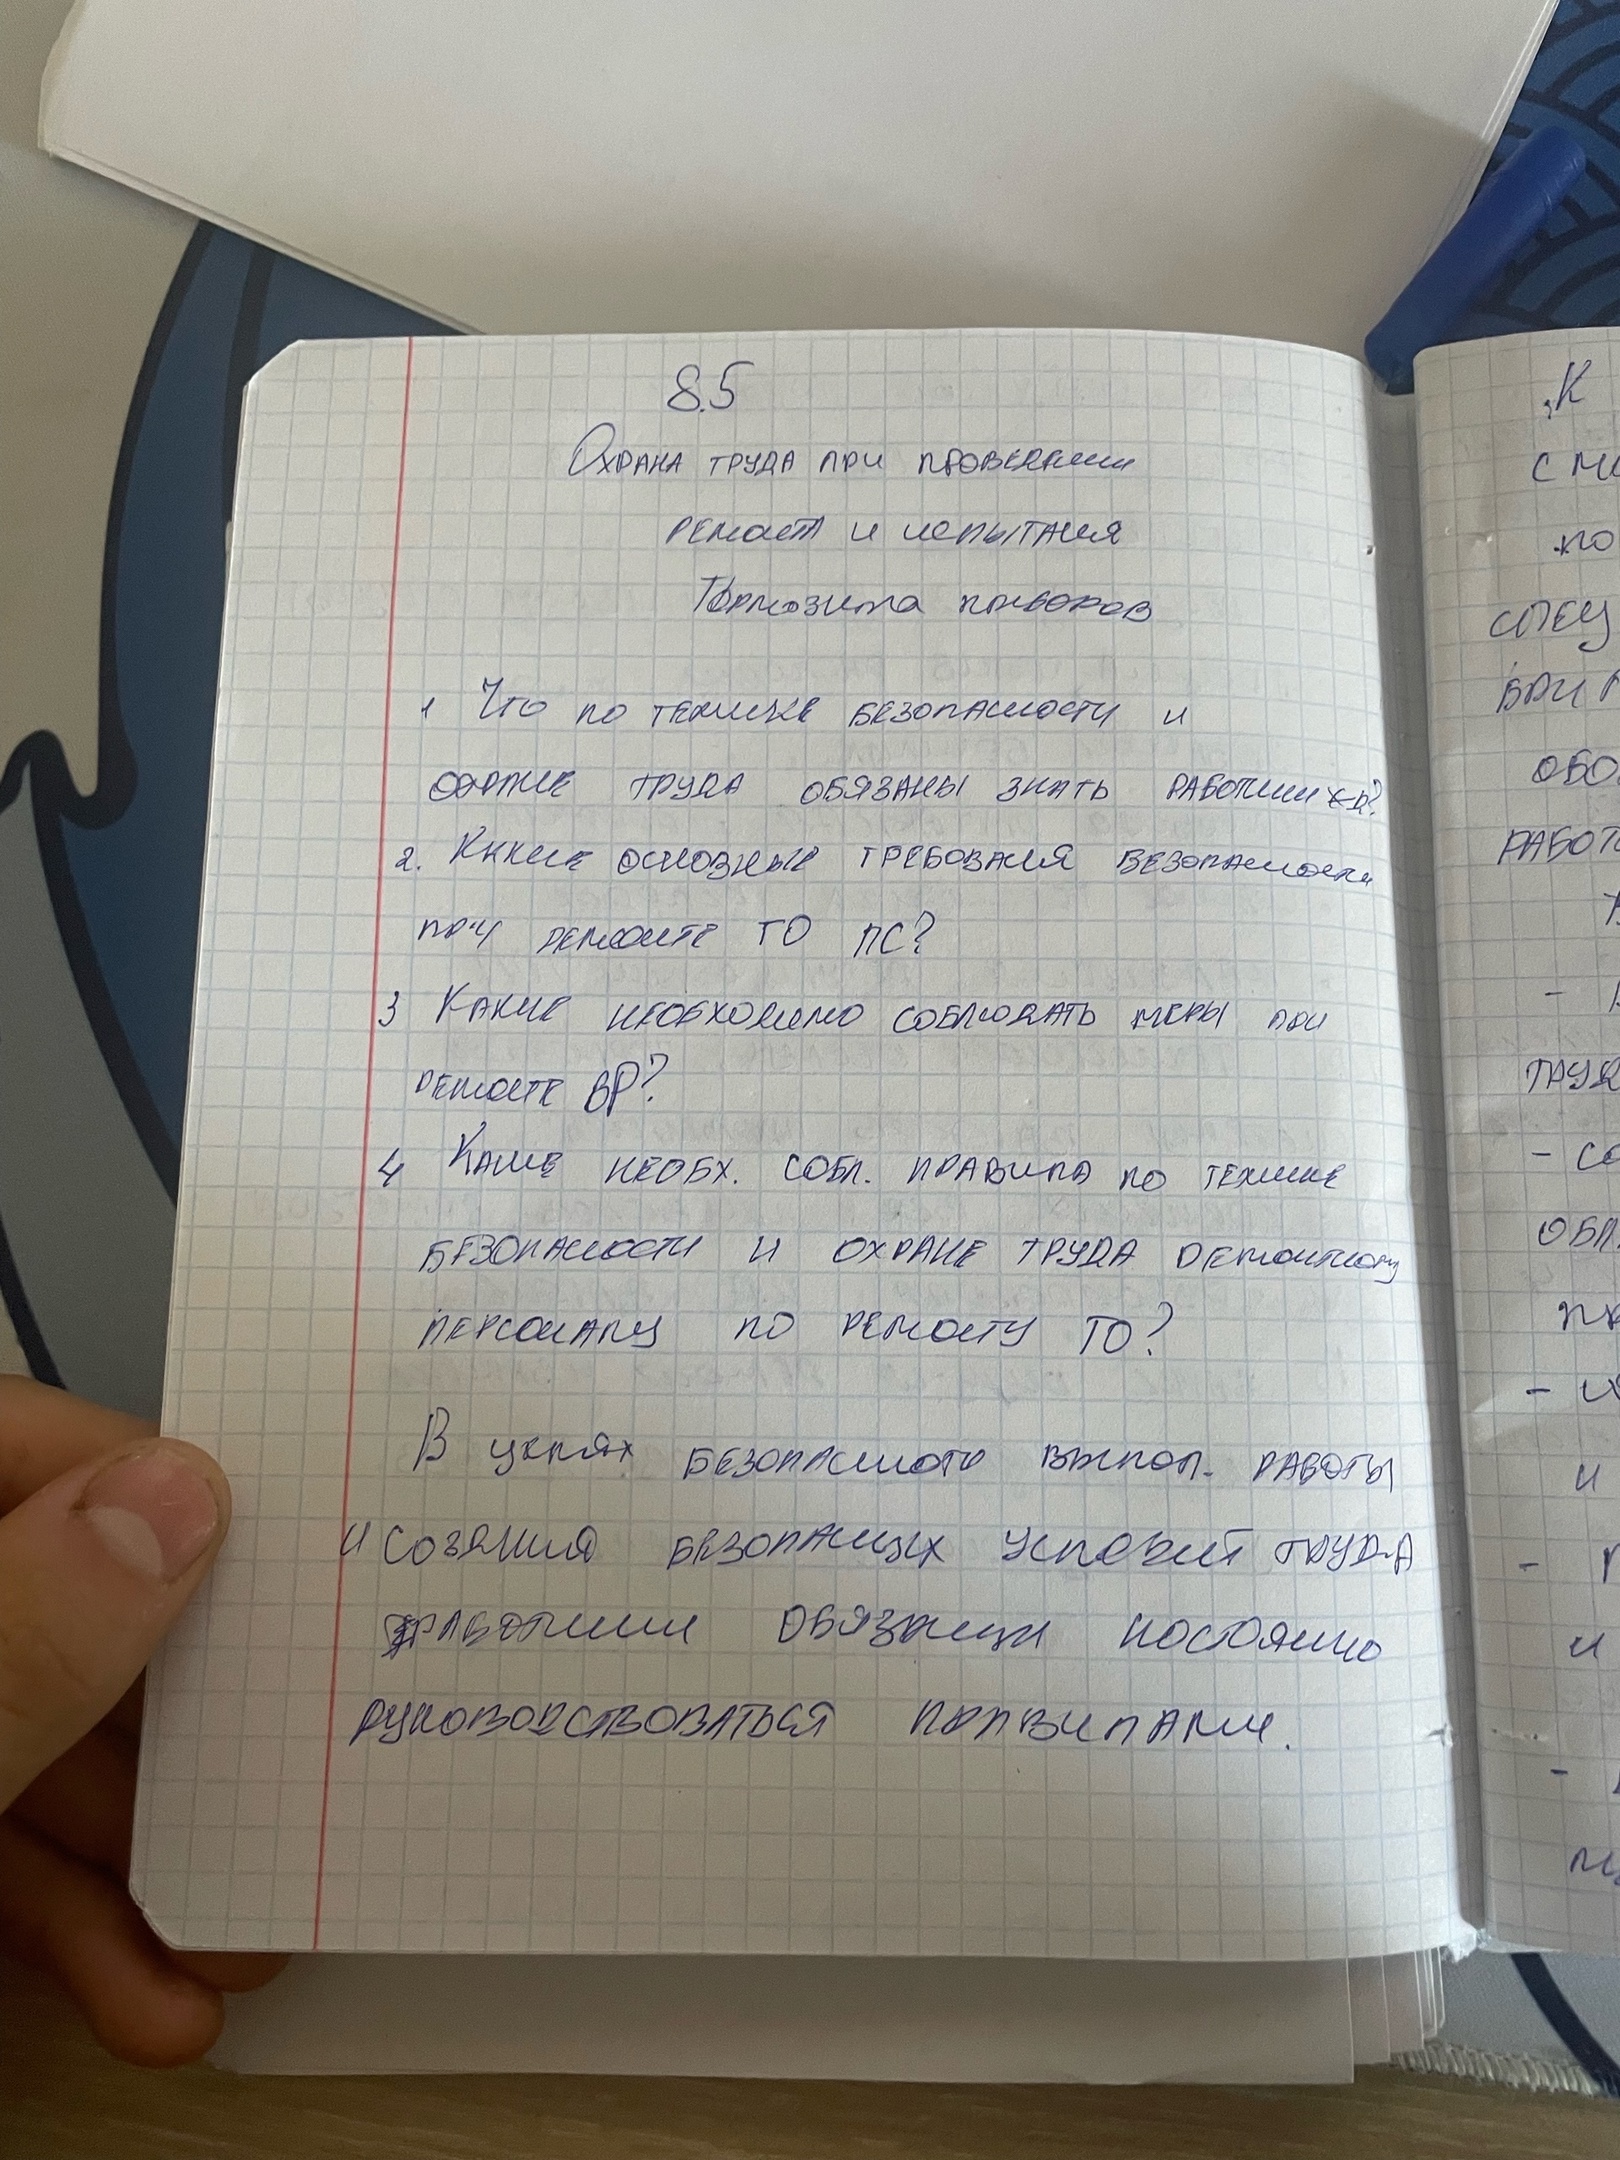 8.5
Охрана труда при проведении
ремонт и испытания
Тормозита приборов
1 Что по технике безопасности и
охране труда обязаны знать работники?
2. Какие основные требования безопасности
при ремонте ТО ПС?
3 Какие необходимо соблюдать меры при
ремонте ВР?
4 Какие необх. собл. правила по технике
безопасности и охране труда ремонтному
персоналу по ремонту ТО?
В целях безопасного выпол. работы
и создания безопасных условий труда
работники обязаны постоянно
руководствоваться правилами.
К
с
по
спец
при
обо
работ
-
труд
- со
обл
-
и
-
и
-